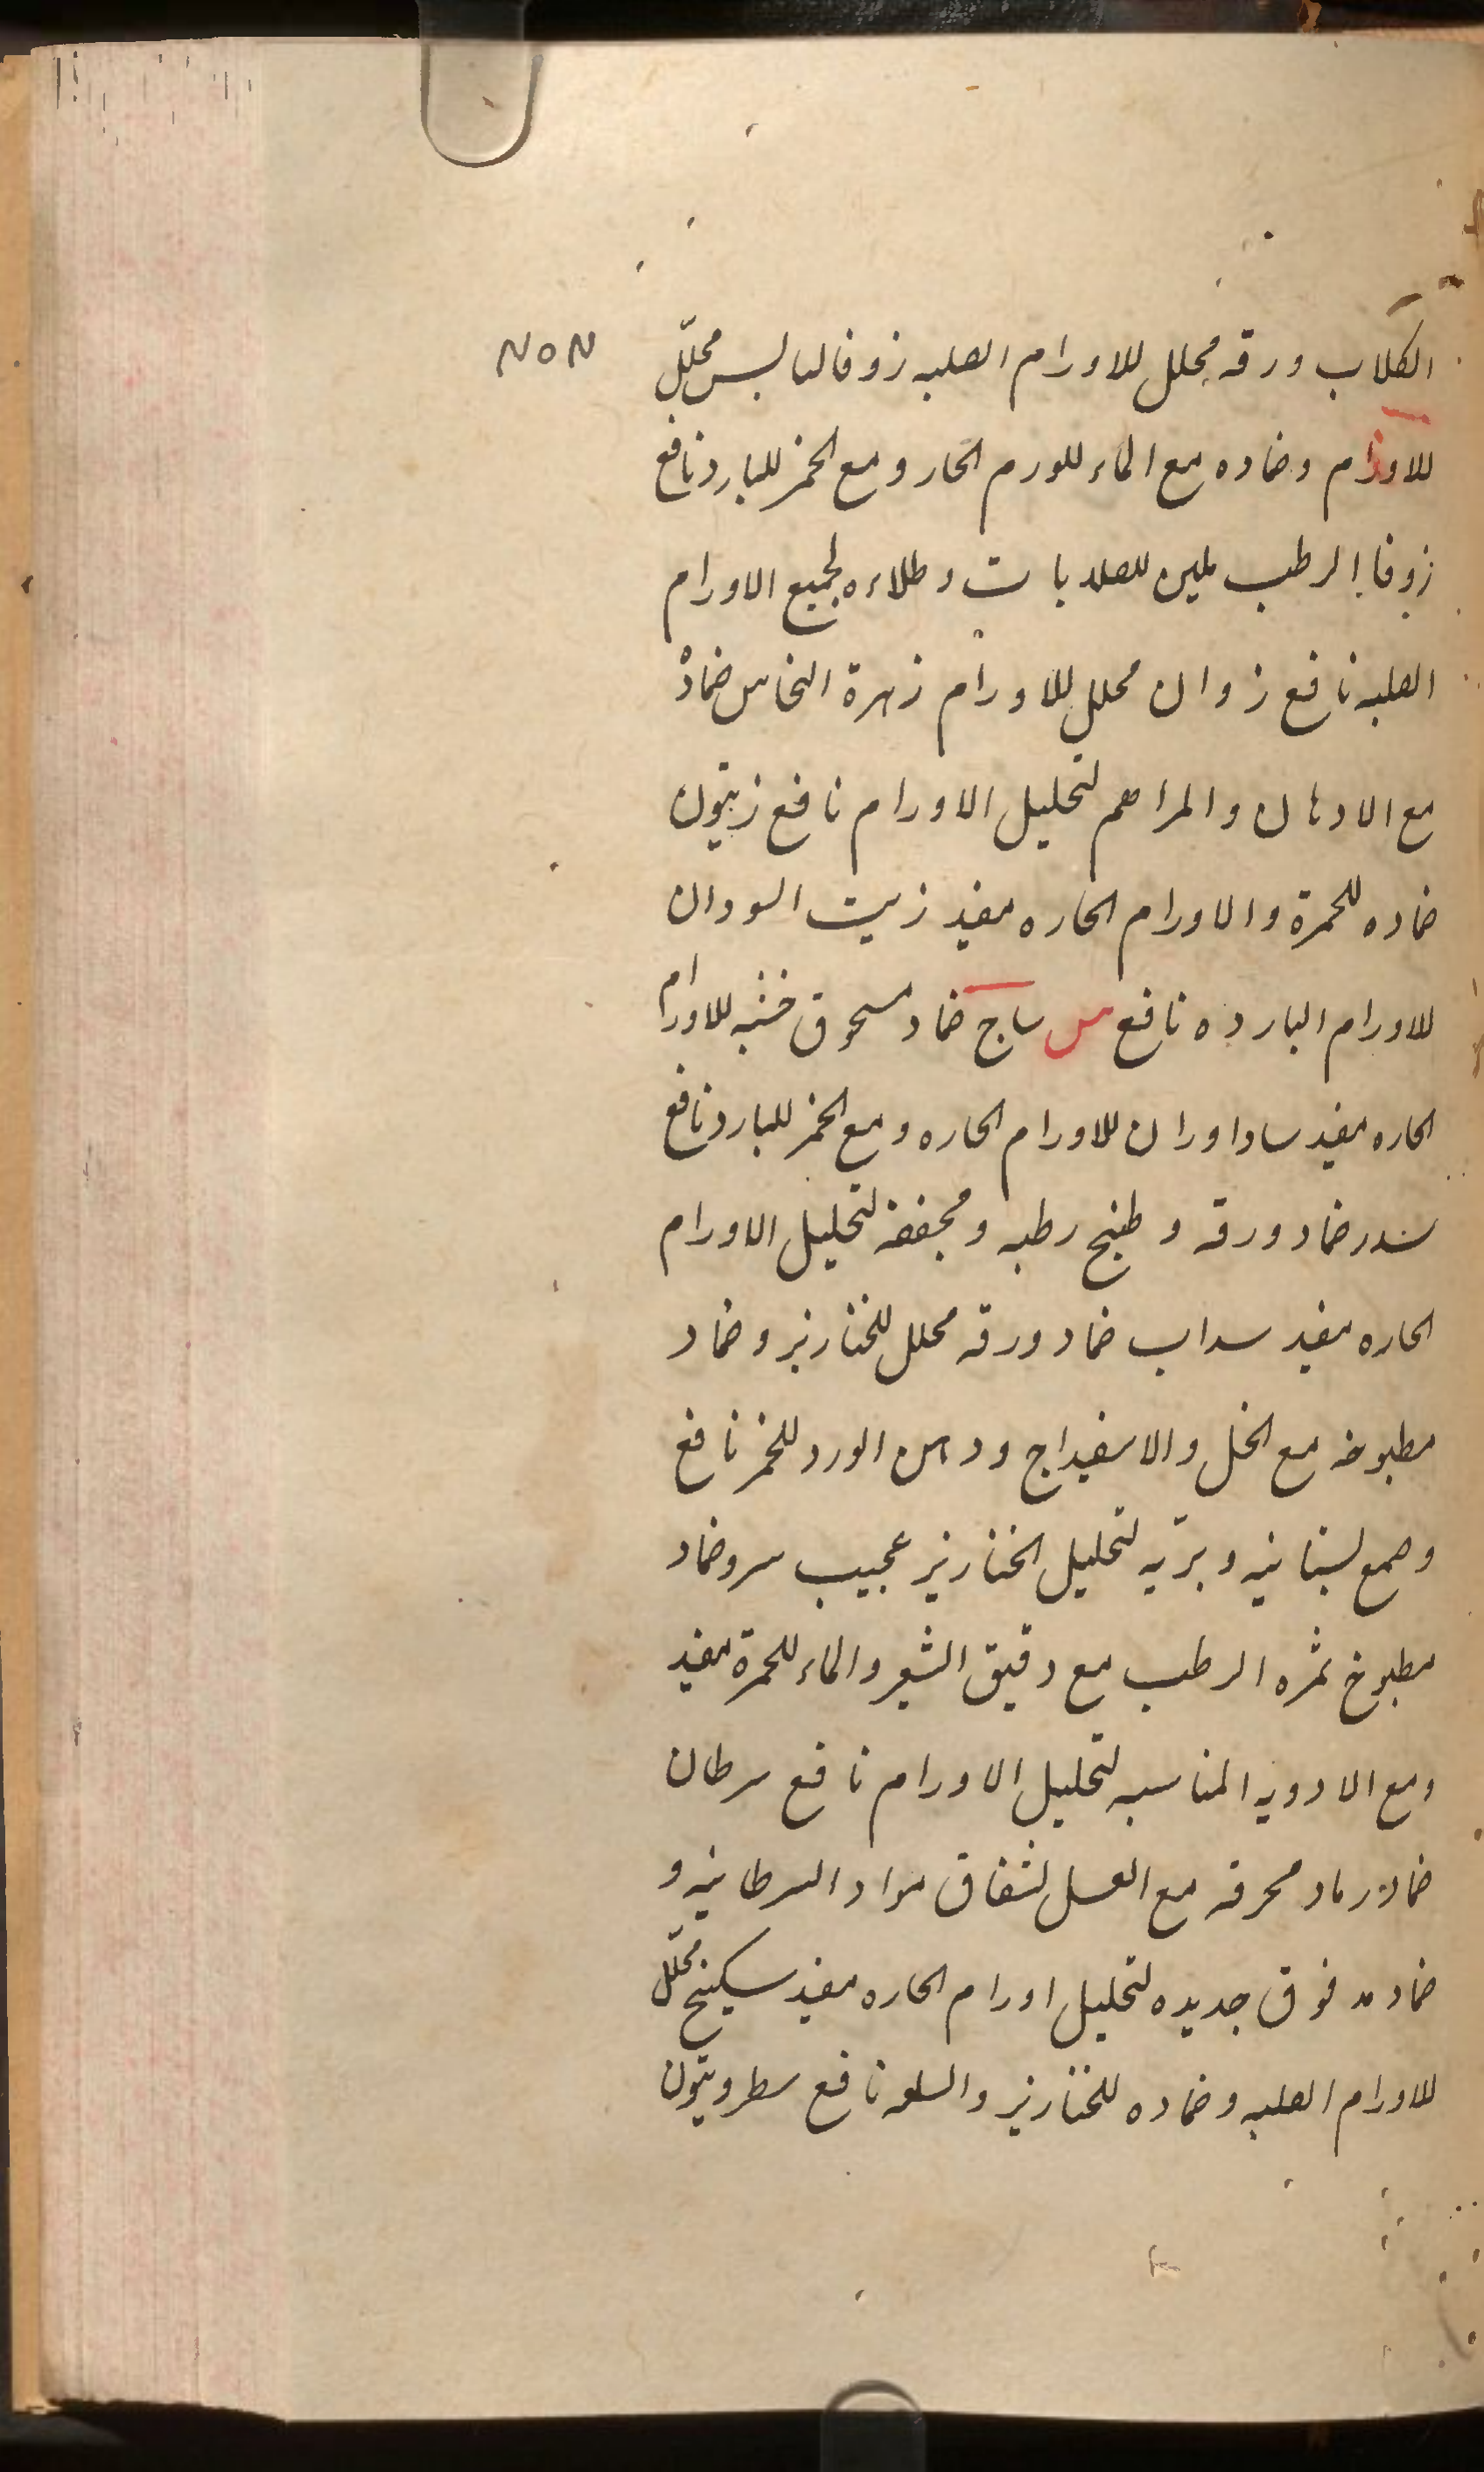 الكلاب ورقه محلل للاورام الصلبه زوفا اليابس محلّل
للاورام وضماده مع الماء للورم الحار ومع الخمر للبارد نافع
زوفا الرطب ملين للصلابات وطلاءه لجميع الاورام
الصلبه نافع زوان محلل للاورام زهرة النحاس ضماد
مع الادهان والمراهم لتحليل الاورام نافع زيتون
ضماده للحمرة والاورام الحاره مفيد زيت السودان
للاورام البارده نافع س ساج ضماد مسحوق خشبه للاورام
الحاره مفيد ساداوران للاورام الحاره ومع الخمر للبارد نافع
سدر ضماد ورقه وطبيخ رطبه ومجففه لتحليل الاورام
الحاره مفيد سداب ضماد ورقه محلل للخنازير وضماد
مطبوخه مع الخل والاسفيداج ودهن الورد للخمر نافع
وصمغ بستانيه وبرّيه لتحليل الخنازير عجيب سرو ضماد
مطبوخ ثمره الرطب مع دقيق الشعير والماء للحمرة مفيد
ومع الادويه المناسبه لتحليل الاورام نافع سرطان
ضماد رماد محرقه مع العسل لشقاق مواد السرطانيه و
ضماد مدقوق جديده لتحليل اورام الحاره مفيد سكبينج محلّل
للاورام الصلبه وضماده للخنازير والسلعه نافع سطرونيون